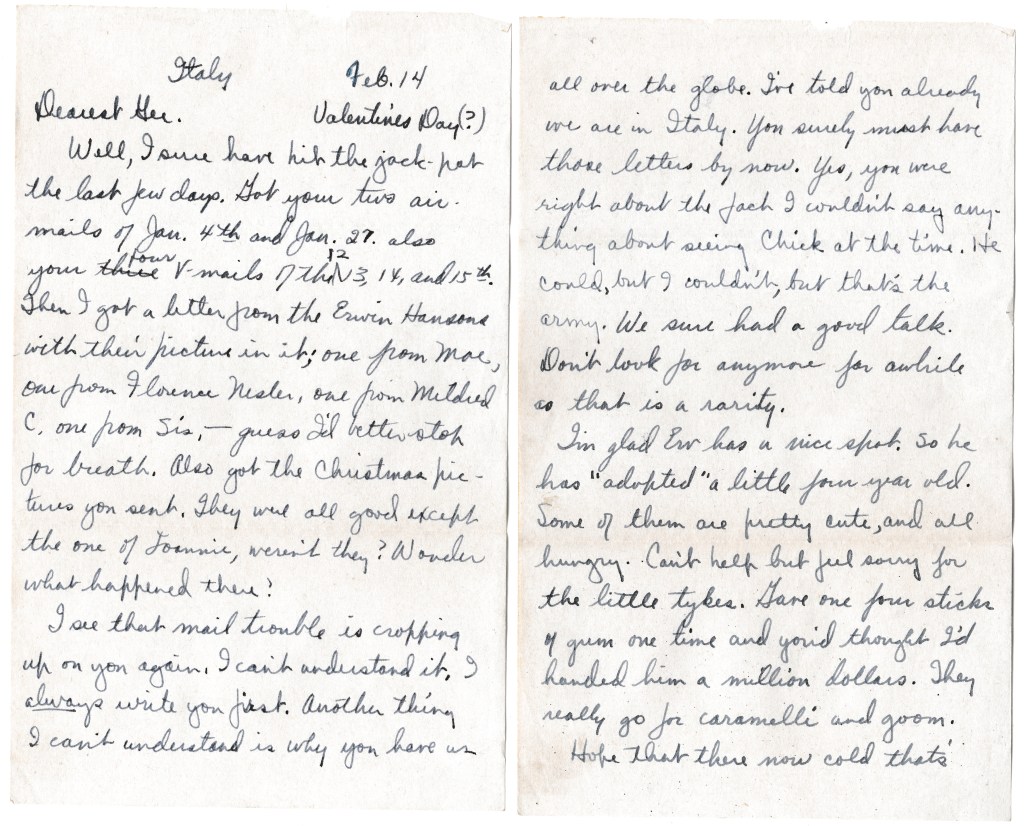 Italy Feb. 14
Dearest Her. Valentines Day(?)
Well, I sure have hit the jack-pot
the last few days. Got your two air-
mails of Jan. 4th and Jan. 27. also
your three four V-mails of the 12 3, 14, and 15th.
Then I got a letter from the Erwin Hansons
with their picture in it; one from Mae,
one from Florence Nesler, one from Mildred
C. one from Sis, — guess I'd better stop
for breath. Also got the Christmas pic-
tures you sent. They were all good except
the one of Joannie, weren't they? Wonder
what happened there?
I see that mail trouble is cropping
up on you again. I can't understand it. I
always write you first. Another thing
I can't understand is why you have us
all over the globe. I've told you already
we are in Italy. You surely must have
those letters by now. Yes, you were
right about the fact I couldn't say any-
thing about seeing Chick at the time. He
could, but I couldn't, but that's the
army. We sure had a good talk.
Don't look for anymore for awhile
as that is a rarity.
I'm glad Erv has a nice spot. So he
has "adopted" a little four year old.
Some of them are pretty cute, and all
hungry. Can't help but feel sorry for
the little tykes. Gave one four sticks
of gum one time and you'd thought I'd
handed him a million dollars. They
really go for caramelli and goom.
Hope that there now cold that's